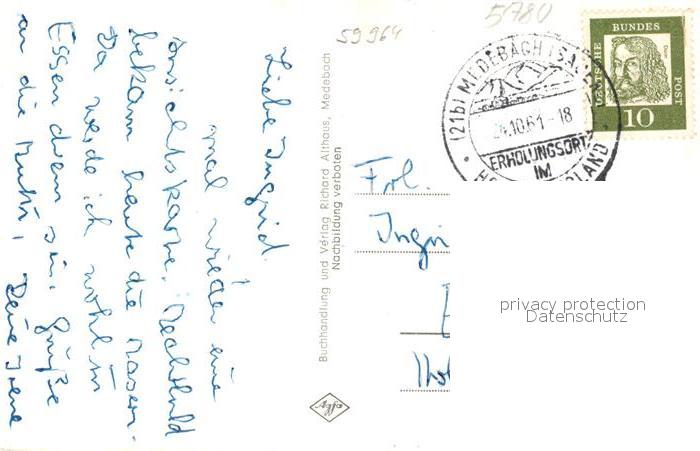 Liebe Ingrid!
mal wieder eine
Ansichtskarte. Mechthild
bekam heute die Masern.
Da werde ich wohl in
Essen dran sein. Grüße
an die Mutti, Deine Irene
Buchhandlung und Verlag Richard Althaus, Medebach
Nachbildung verboten
Agfa
59964
5780
DEUTSCHE BUNDES POST
10
(21b) MEDEBACH (SA
24.10.61-18
ERHOLUNGSORT
IM
LAND
Frl.
Ingri
privacy protection
Datenschutz